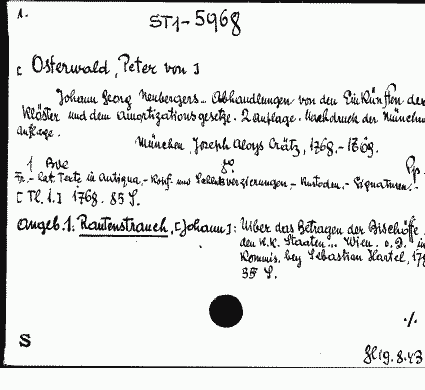 A.
ST1-5968
[Osterwald, Peter von]
Johann Georg Neubergers... Abhandlungen von den Einkünften der
Klöster und dem Amortizationsgesetze. 2 auflage. Nachdruck der Münchn
auflage.
München, Joseph Aloys Crätz, 1768.-1769.
1 Bve 8°. Pp.
Fr.- Lat. Texte in Antiqua,- Kopf- und Zellenverzierungen,- Kustoden,- Signaturen.-
[Tl. 1.] 1768. 85 S.
Angeb. 1: Rautenstrauch, [Johann]: Über das Betragen der Bischöffe
den K.K. Staaten... Wien. o.D. in
Kommis. bey Sebastian Hartel, 178
35 S.
./.
S
19.8.43